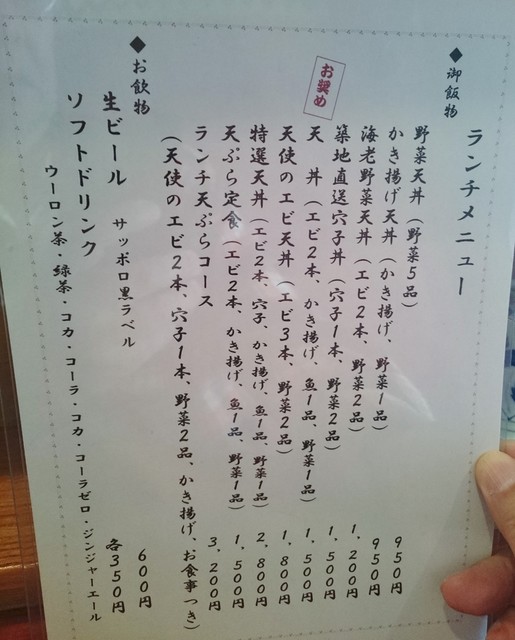 ランチメニュー
◆御飯物
野菜天丼（野菜5品） 950円
かき揚げ天丼（かき揚げ、野菜1品） 950円
海老野菜天丼（エビ2本、野菜2品） 1.200円
築地直送穴子丼（穴子1本、野菜2品） 1.500円
お奨め
天　丼（エビ2本、かき揚げ、魚1品、野菜1品） 1.500円
天使のエビ天丼（エビ3本、野菜2品） 1.800円
特選天丼（エビ2本、穴子、かき揚げ、魚1品、野菜1品） 2.800円
天ぷら定食（エビ2本、かき揚げ、魚1品、野菜1品） 1.500円
ランチ天ぷらコース 3.200円
（天使のエビ2本、穴子1本、野菜2品、かき揚げ、お食事つき）
◆お飲物
生ビール　サッポロ黒ラベル 600円
ソフトドリンク 各350円
ウーロン茶・緑茶・コカ・コーラ・コカ・コーラゼロ・ジンジャーエール